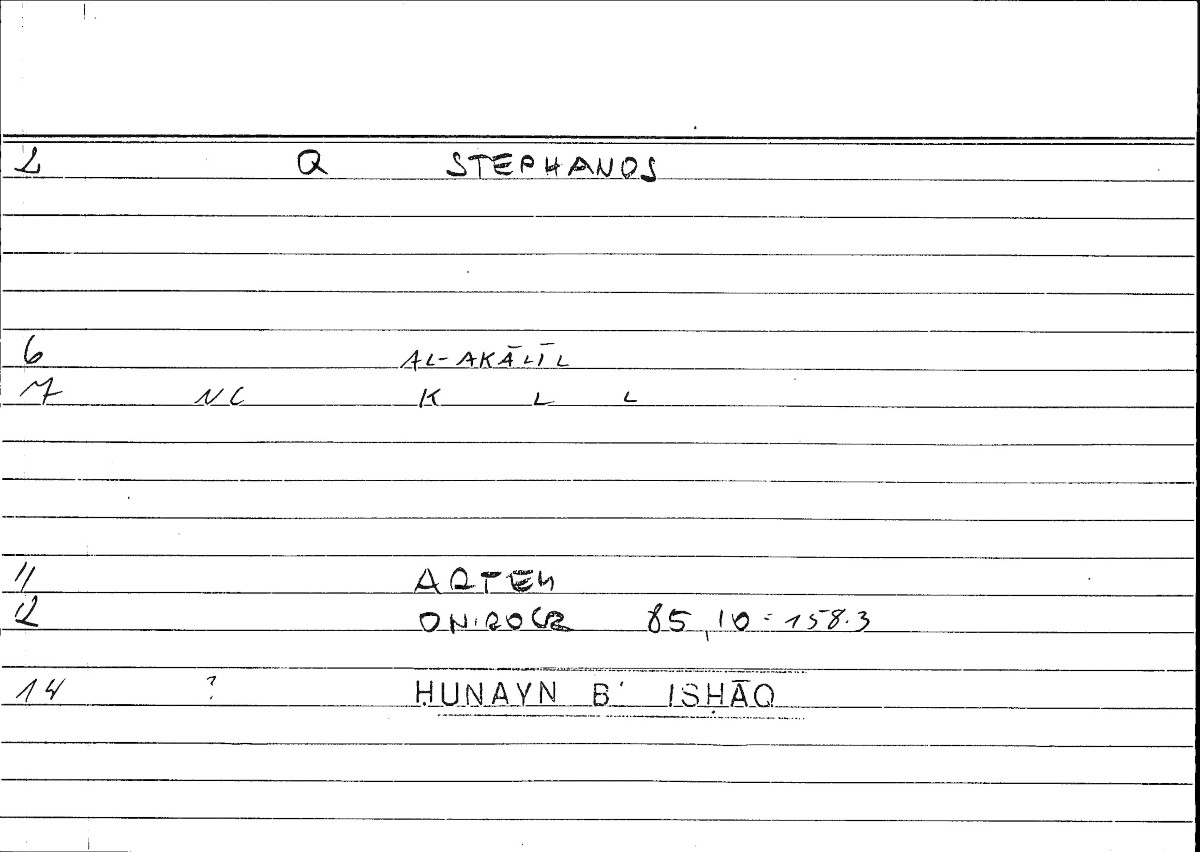 2 Q STEPHANOS
6 AL-AKĀLĪL
7 NC K L L
11 ARTEM
12 ONIROCR 85,10 = 158.3
14 ? ḤUNAYN B' ISḤĀQ